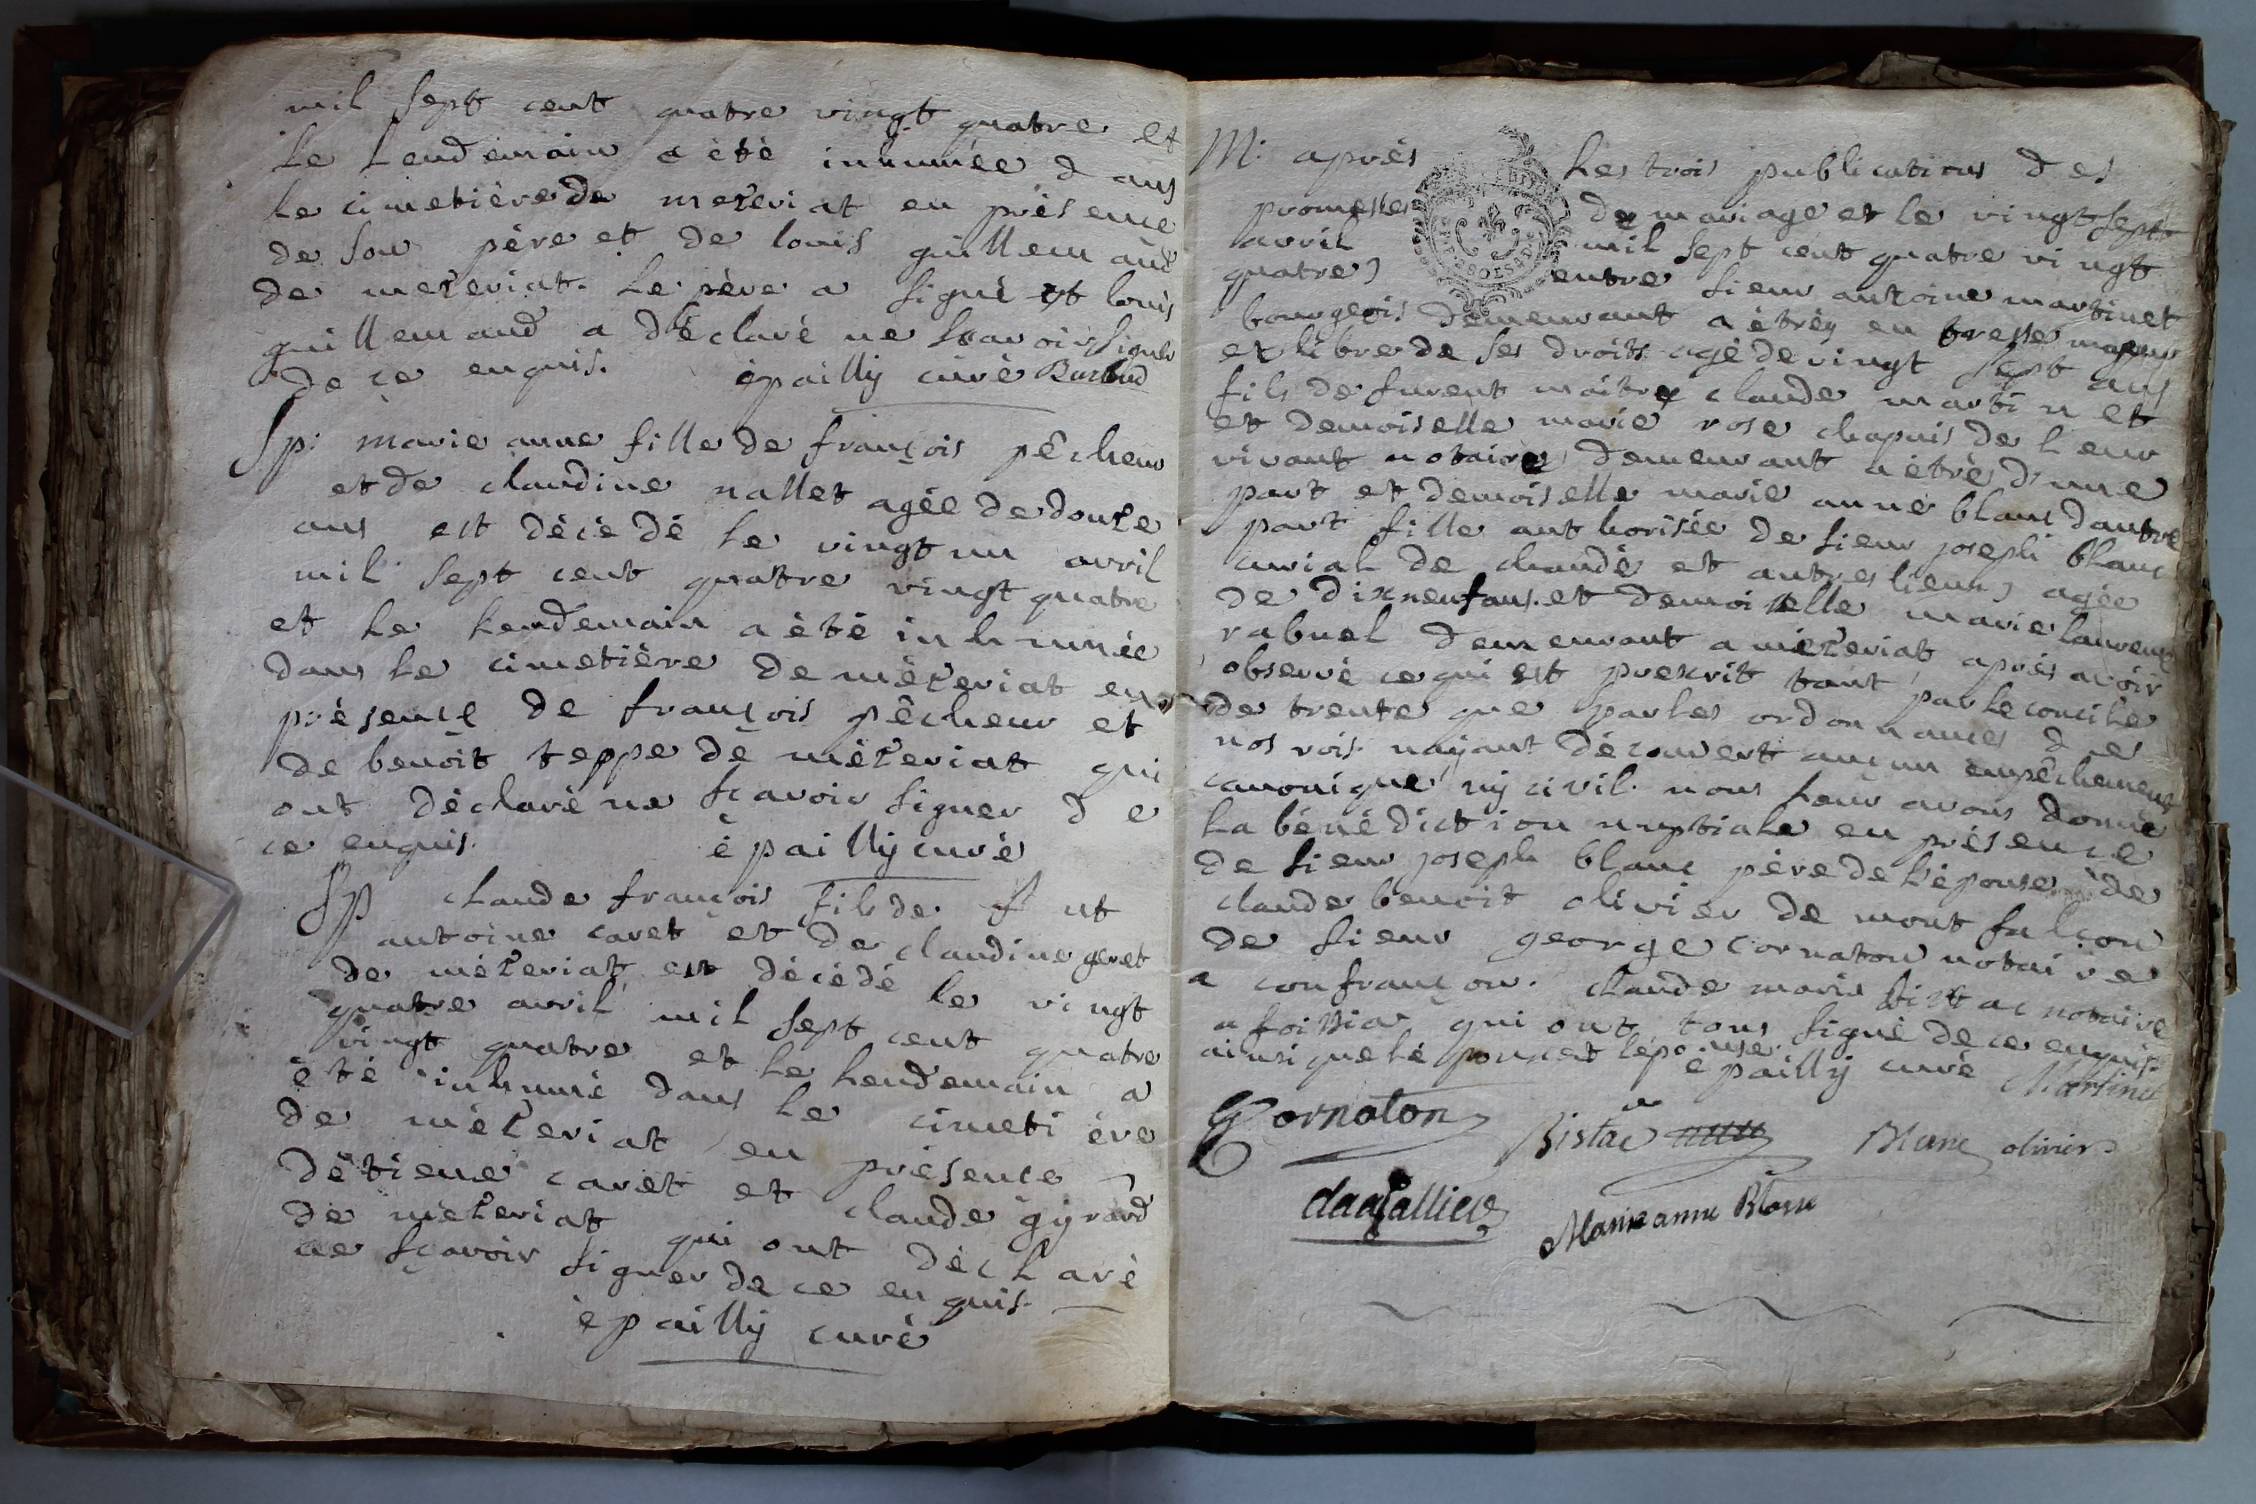 mil sept cent quatre vingt quatre et
le lendemain a èté inhumée dans
le cimetière de mezeriat en présence
de son pére et de louis guillemaud
de mezeriat. le père a signé et louis
guillemaud a déclaré ne scavoir signer
de ce enquis. épailly curé
Sp: marie anne fille de françois pêcheur
et de claudine nallet agée de douze
ans est décédé le vingt un avril
mil sept cent quatre vingt quatre
et le lendemain a été inhumée
dans le cimetière de mézeriat en
présence de françois pêcheur et
de benoit teppe de mézeriat qui
ont déclaré ne sçavoir signer de
ce enquis. épailly curé
Sp claude françois fils de fut
antoine caret et de claudine geret
de mézeriat est décédé le vingt
quatre avril mil sept cent quatre
vingt quatre et le lendemain a
été inhumé dans le cimetiére
de mézeriat en présence
détiene caret et claude gyrard
de mézeriat qui ont déclaré
ne sçavoir signer de ce enquis.
épailly curé
M: après les trois publications des
promesses de mariage et le vingt sept
avril mil sept cent quatre vingt
quatre, entre sieur antoine martinet
bourgeois demeurant a étréz en bresse majeur
et libre de ses droits agé de vingt sept ans
fils de furent maitre claude martinet
et demoiselle marie rose chapuis de leur
vivant notaire, demeurant a étrés d'une
part et demoiselle marie anne blanc dautre
part fille authorisée de sieur joseph blanc
curial de chandé et autres lieux, agée
de dix neuf ans. et demoiselle marie laurence
rabuel demeurant a mézeriat, après avoir
observé ce qui est prescrit tant par le concile
de trente que par les ordonnances de
nos rois. nayant découvert aucun empêchement
canonique ny civil. nous leur avons donné
la bénédiction nuptiale en présence
de sieur joseph blanc père de l'épouse de
claude benoit olivier de mont falcon
de sieur george cornaton notaire
a confrançon. claude marie bistac notaire
a foissiat qui ont tous signé de ce enquis.
ainsi que lépoux et lépouse. épailly curé Martinet
G Cornaton Bistac Blanc olivier
Marie anne Blanc